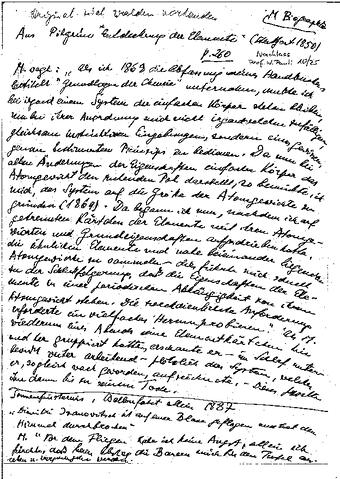 Original wird werden
M Biograph
Aus Pilgrim "Entdeckung der Elemente" (Stuttgart 1950)
p. 260
Nachlass
Prof. W. Pauli 10/25
M. sagt: "Als ich 1868 die Abfassung meines Handbuches
betitelt "Grundlagen der Chemie" unternahm, mußte ich
bei irgend einem System der einfachen Körper stehen bleiben,
um bei ihrer Anordnung mich nicht irgendwelchen zufälligen
gleichsam instinktiven Eingebungen, sondern eines
genau bestimmten Prinzips zu bedienen. Da nun bei
allen Änderungen der Eigenschaften einfacher Körper das
Atomgewicht den ruhenden Pol darstellt, so bemühte ich
mich, das System auf die Größe der Atomgewichte zu
gründen (1869). Da begann ich nun, nachdem ich auf
getrennten Kärtchen der Elemente mit ihren Atomge-
wichten und Grundeigenschaften aufgeschrieben hatte,
die ähnlichen Elemente und nahe beieinander liegenden
Atomgewichte zu sammeln - dies führte mich schnell
zu der Schlußfolgerung, daß die Eigenschaften der Ele-
mente in einer periodischen Abhängigkeit von ihrem
Atomgewicht stehen.
erforderte ein vielfaches Herumprobieren." Als M.
wiederum eines Abends seine Elementkärtchen hin
und her gruppiert hatte, erschaute er - im Schlaf unter-
bewußt weiter arbeitend - plötzlich das System, welches
er, sogleich wach geworden, aufzeichnete. - Dieses
ihn dann bis zu seinem Tode.
Sonnenfinsternis, Ballonfahrt allein 1887
"Dimitri Ivanovitch ist auf einer Blase geflogen und hat den
Himmel durchbrochen"
M. "Vor dem Fliegen habe ich keine Angst, allein ich
fürchte, daß beim Abstieg die Bauern mich für den Teufel an-
sehen u. verprügeln werden."